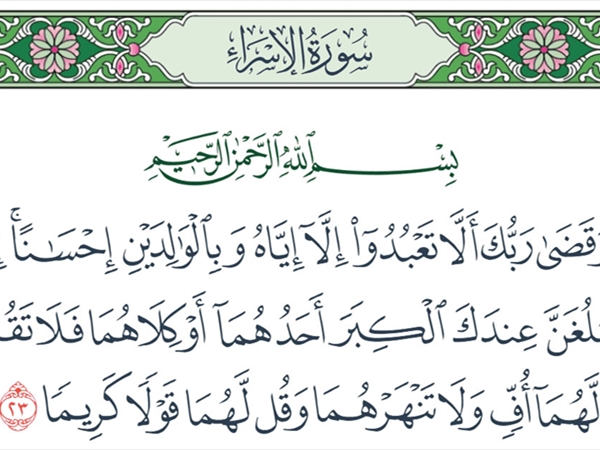 سُورَةُ الإِسْرَاءِ
بِسْمِ ٱللَّهِ ٱلرَّحْمَٰنِ ٱلرَّحِيمِ
قَضَىٰ رَبُّكَ أَلَّا تَعْبُدُوٓا۟ إِلَّآ إِيَّاهُ وَبِٱلْوَٰلِدَيْنِ إِحْسَٰنًا ۚ
عِندَكَ ٱلْكِبَرَ أَحَدُهُمَآ أَوْ كِلَاهُمَا فَلَا
لَّهُمَآ أُفٍّ وَلَا تَنْهَرْهُمَا وَقُل لَّهُمَا قَوْلًا كَرِيمًا ٢٣